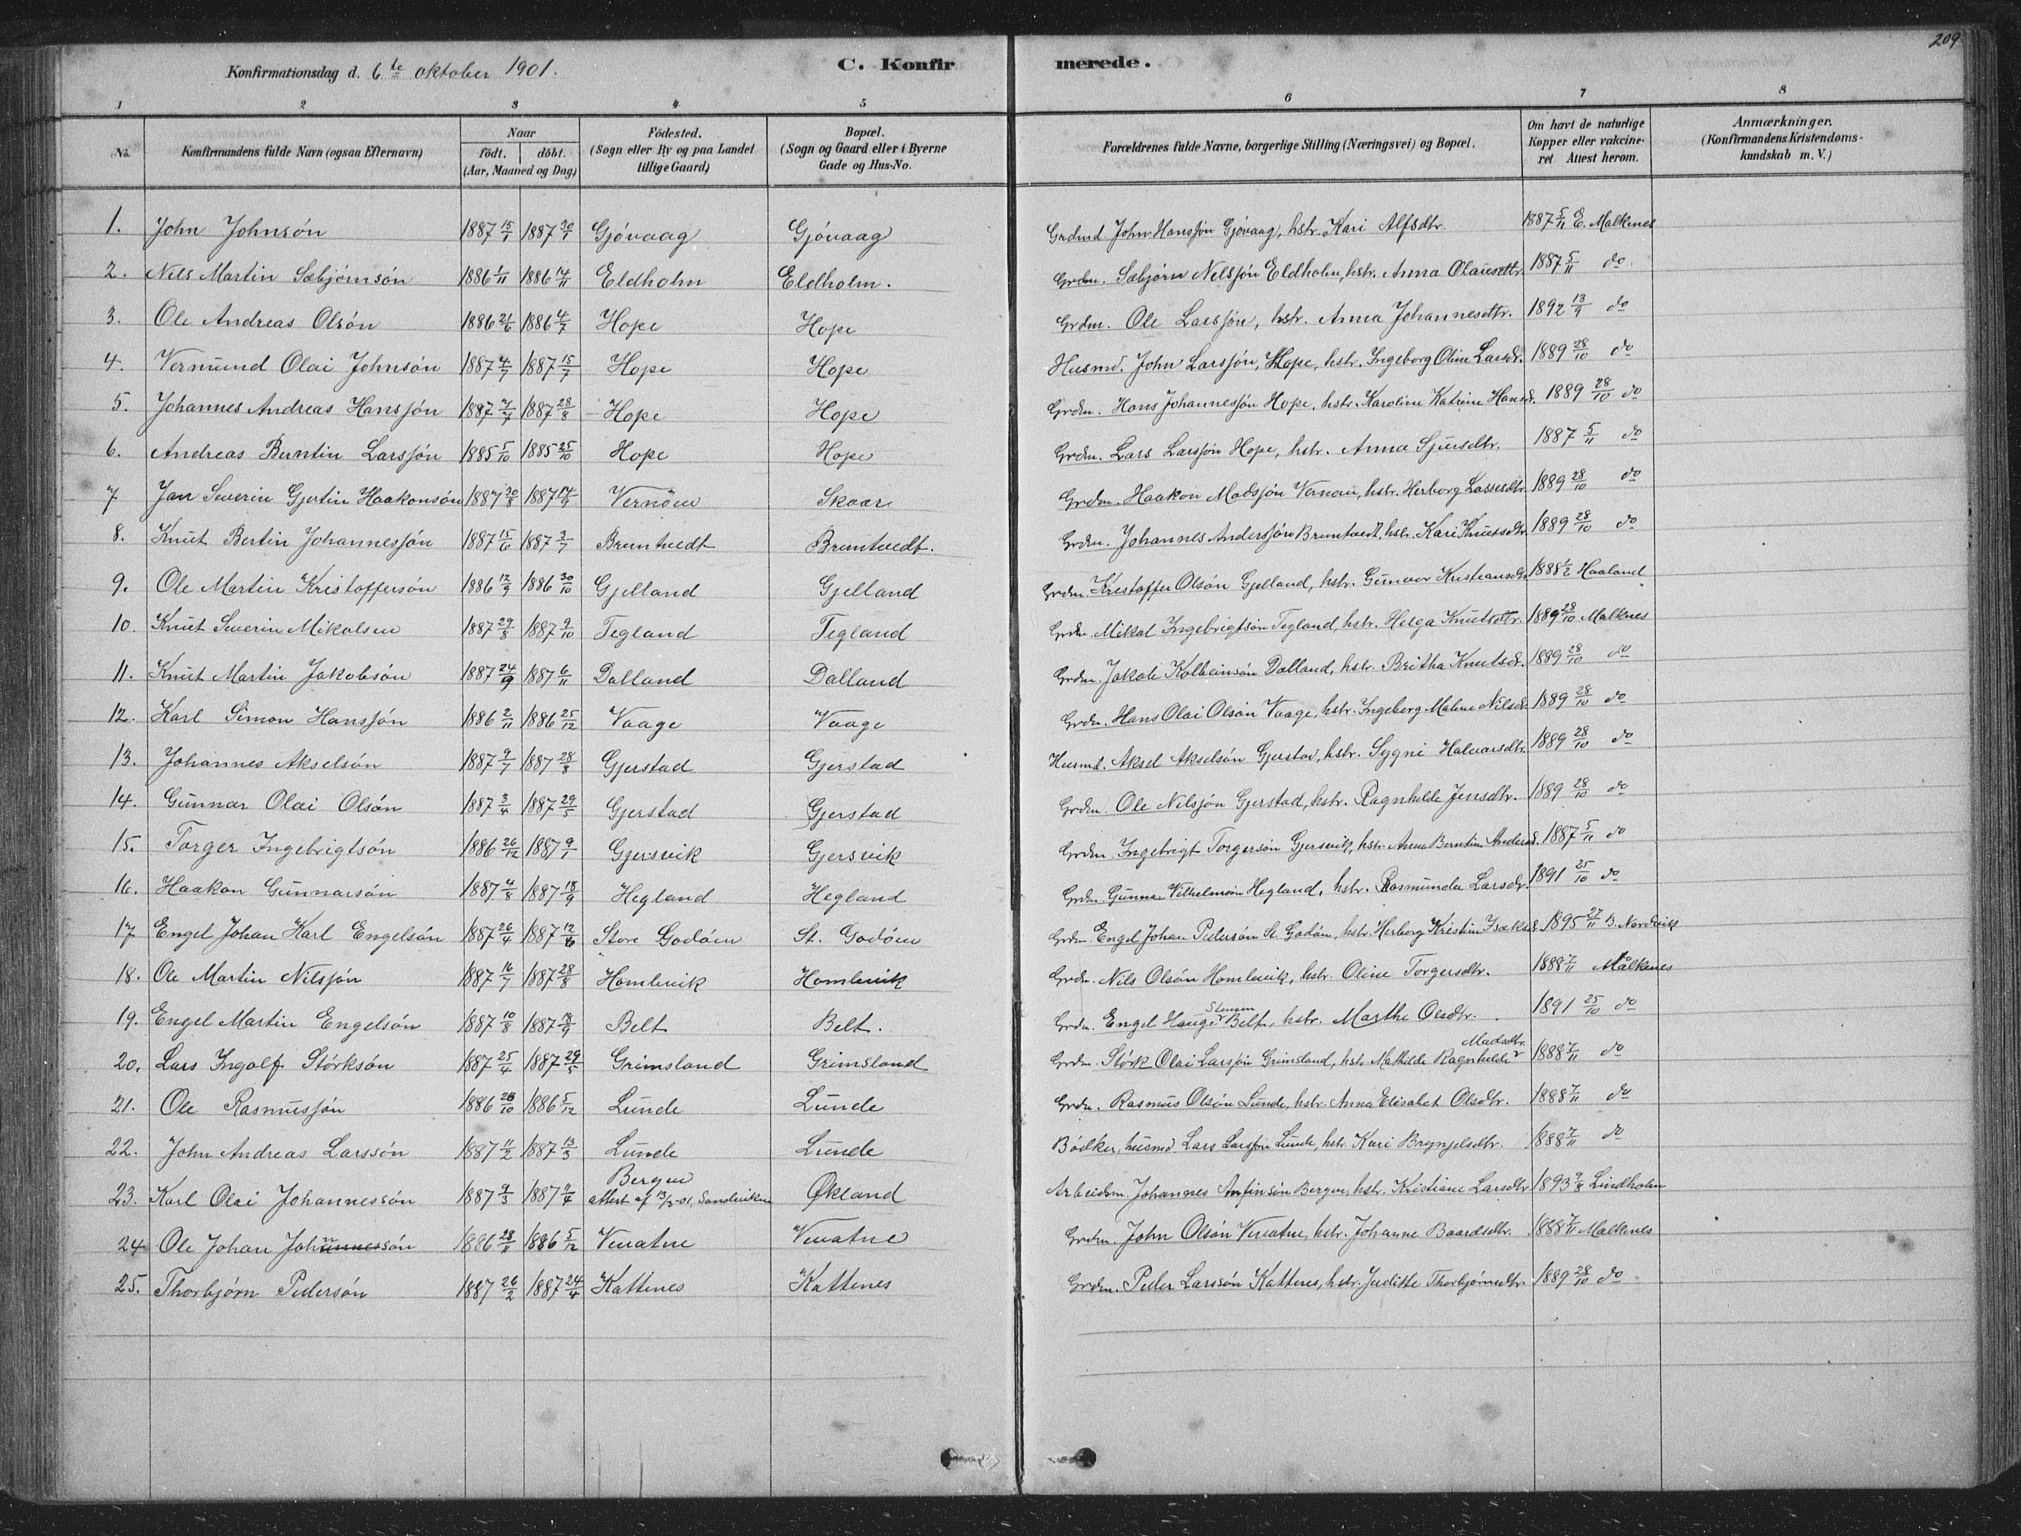 209
Konfirmationsdag d. 6te oktober 1901. C. Konfirmerede.
1 2 3 4 5 6 7 8
No. Konfirmandens fulde Navn (ogsaa Efternavn) Naar født. døbt. (Aar, Maaned og Dag) Födested. (Sogn eller By og paa Landet tillige Gaard) Bopæl. (Sogn og Gaard eller i Byerne Gade og Hus-No. Forældrenes fulde Navne, borgerlige Stilling (Næringsvei) og Bopæl. Om havt de naturlige Kopper eller vakcineret Attest herom. Anmærkninger. (Konfirmandens Kristendomskundskab m. V.)
1. John Johnsön 1887 15/1 1887 30/1 Gjövaag Gjövaag Grdmd John Hanssön Gjövaag, hstr. Kari Alfsdtr. 1887 5/11 E. Malkenes
2. Nils Martin Sæbjörnsön 1886 1/11 1886 14/11 Eldholm Eldholm. Grdm. Sæbjörn Nelssön Eldholm, hstr. Anna Olausdtr. 1887 5/11 do
3. Ole Andreas Olsön 1886 21/6 1886 4/7 Hope Hope Grdm. Ole Larssön, hstr. Anna Johannesdtr. 1892 13/9 do
4. Vermund Olai Johnsön 1887 4/7 1887 15/7 Hope Hope Husmd. John Larssön, Hope, hstr. Ingeborg Oline Larsd. 1889 28/10 do
5. Johannes Andreas Hanssön 1887 7/7 1887 28/8 Hope Hope Grdm. Hans Johannessön Hope, hstr. Karoline Katrine Hansd. 1889 28/10 do
6. Andreas Berntin Larssön 1885 5/10 1885 25/10 Hope Hope Grdm. Lars Larssön Hope, hstr. Anna Sjursdtr. 1887 5/11 do
7 Jan Severin Gjertin Haakonsön 1887 30/8 1887 14/9 Vernöen Skaar Grdm. Haakon Madssön Vernöen, hstr. Herborg Lassesdtr. 1889 28/10 do
8. Knut Bertin Johannessön 1887 15/6 1887 3/7 Bruntvedt Bruntvedt. Grdm. Johannes Anderssön Bruntvedt, hstr. Kari Knutsdtr. 1889 28/10 do
9. Ole Martin Kristoffersön 1886 12/9 1886 30/10 Gjelland Gjelland Grdm. Kristoffer Olsön Gjelland, hstr. Gunvor Kristiansd. 1888 1/2 Haaland
10. Knut Severin Mikalsen 1887 29/8 1887 9/10 Tegland Tegland Grdm. Mikal Ingebrigtsön Tegland, hstr. Helga Knutsdtr. 1889 28/10 Malknes
11. Knut Martin Jakobsön 1887 24/9 1887 6/11 Dalland Dalland Grdm. Jakob Kolbeinsön Dalland, hstr. Britha Knutsd. 1889 28/10 do
12. Karl Simon Hanssön 1886 2/11 1886 25/12 Vaage Vaage Grdm. Hans Olai Olsön Vaage, hstr. Ingeborg Malene Nilsd. 1889 28/10 do
13. Johannes Akselsön 1887 9/7 1887 28/8 Gjerstad Gjerstad Husmd. Aksel Akselsön Gjerstad, hstr. Sygni Halvarsdtr. 1889 28/10 do
14. Gunnar Olai Olsön 1887 3/4 1887 29/5 Gjerstad Gjerstad Grdm. Ole Nilssön Gjerstad, hstr. Ragnhilde Jensdtr. 1889 28/10 do
15. Torger Ingebrigtsön 1886 26/12 1887 9/1 Gjersvik Gjersvik Grdm. Ingebrigt Torgersön Gjersvik, hstr. Anna Berntin Andersd. 1887 5/11 do
16. Haakon Gunnarsön 1887 4/8 1887 18/9 Hegland Hegland Grdm. Gunnar Vilhelmsön Hegland, hstr. Rasmunda Larsdtr. 1891 25/10 do
17 Engel Johan Karl Engelsön 1887 26/4 1887 12/6 Store Godöen St. Godöen Grdm. Engel Johan Pedersön St. Godöen, hstr. Herborg Kristin Isaksd. 1895 27/11 B. Nordvik
18. Ole Martin Nilssön 1887 16/7 1887 28/8 Homlevik Homlevik Grdm. Nils Olsön Homlevik, hstr. Oline Torgersdtr. 1888 7/11 Målkenes
19. Engel Martin Engelsön 1887 10/8 1887 18/9 Belt Belt. Grdm. Engel Hauge Belt, hstr. Marthe Olsdtr. 1891 25/10 do
20. Lars Ingolf Störksön 1887 25/4 1887 29/5 Grimsland Grimsland Grdm. Störk Olai Larssön Grimsland, hstr. Mathilde Ragnhilde Madsdtr. 1888 7/11 do
21. Ole Rasmussön 1886 28/10 1886 5/12 Lunde Lunde Grdm. Rasmus Olsön Lunde, hstr. Anna Elisabet Olsdtr. 1888 7/11 do
22. John Andreas Larssön 1887 11/2 1887 13/3 Lunde Lunde Bödker, husmd Lars Larssön Lunde, hstr. Kari Brynjelsdtr. 1888 7/11 do
23. Karl Olai Johannessön 1887 9/3 1887 7/4 Bergen attest af 13/2-01, Sandviken Økland Arbeidsm. Johannes Anfinsön Bergen, hstr. Kristiane Larsdtr. 1893 9/8 Lindholm
24. Ole Johan Johnsön 1886 28/11 1886 5/12 Vevatne Vevatne Grdm. John Olsön Vevatne, hstr. Johanne Baardsdtr. 1888 7/11 Malkenes
25. Thorbjørn Pedersön 1887 26/2 1887 24/4 Kattenes Kattenes Grdm. Peder Larssön Kattenes, hstr. Judithe Thorbjørnsdtr. 1889 28/10 do